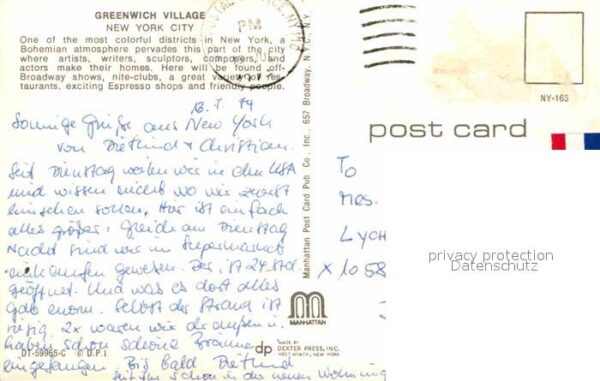 GREENWICH VILLAGE
NEW YORK CITY
One of the most colorful districts in New York, a
Bohemian atmosphere pervades this part of the city
where artists, writers, sculptors, composers, and
actors make their homes. Here will be found off-
Broadway shows, nite-clubs, a great variety of res-
taurants, exciting Espresso shops and friendly people.
PM
NY-163
post card
Sonnige Grüße aus New York
von Dietlind + Christian.
Seit Dienstag weilen wir in den USA
und wissen nicht wo wir zuerst
hinsehen sollen. Hier ist einfach
alles größer. Gleich am Dienstag
Nacht sind wir im Supermarket
einkaufen gewesen. Der ist 24 Std
geöffnet. Und was es dort alles
gab enorm. Selbst der Strand ist
riesig. 2x waren wir draußen u.
haben schon schöne Bräune
eingefangen Bis bald Dietlind
seit schon in der neuen Wohnung
To
Mrs.
LYCH
X 1058
privacy protection
Datenschutz
Manhattan Post Card Pub Co. Inc. 657 Broadway, N.Y.C. N.Y.
MANHATTAN
DT-59965-C © D.P.I
dp
MADE BY
DEXTER PRESS, INC.
WEST NYACK, NEW YORK